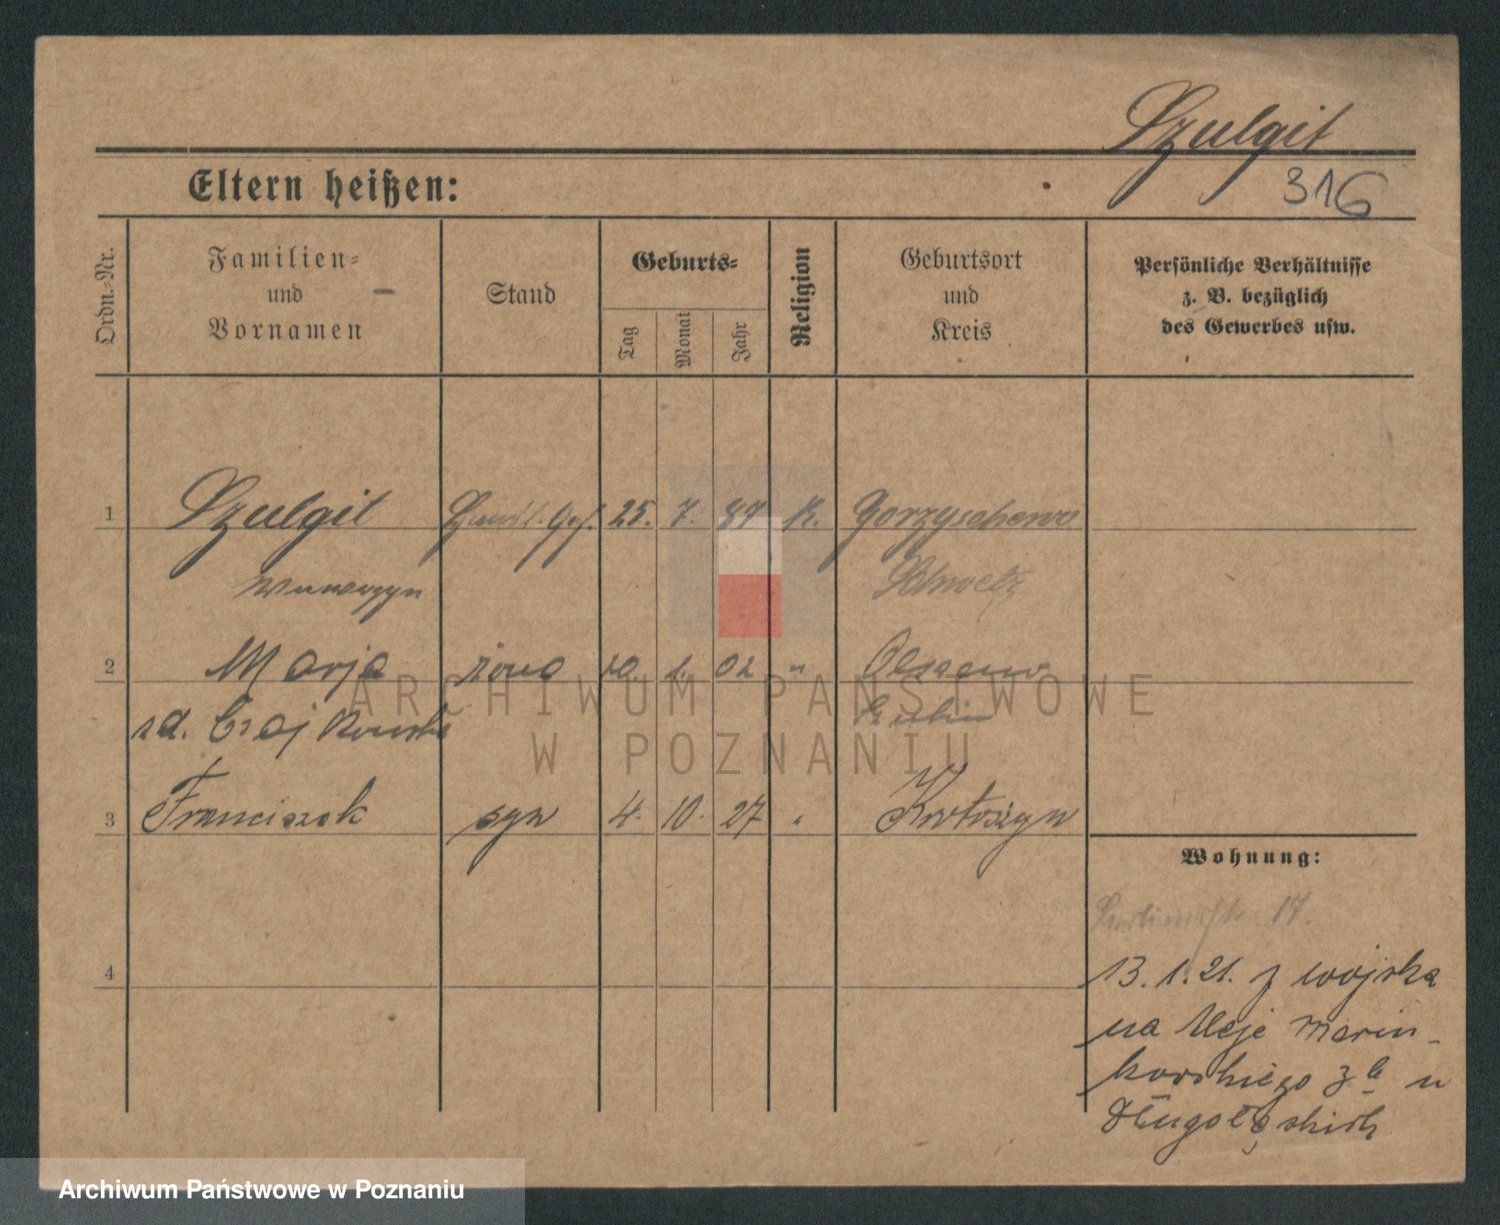 Szulgit
Eltern heißen:
316
Ordn.-Nr.
Familien-
und
Vornamen
Stand
Geburts-
Tag
Monat
Jahr
Religion
Geburtsort
und
Kreis
Persönliche Verhältnisse
z. B. bezüglich
des Gewerbes usw.
1 Szulgit 25. 7. K. Gorzyschewo
Wawrzyn Schwetz
2 Marja żona 02 "
zd. Czajkowska
3 Franciszek syn 4. 10. 27 " Krotoszyn
Wohnung:
17.
4
13.1.21. z wojska
na Aleje Marcin-
kowskiego 3a u
Długołęskich
ARCHIWUM PAŃSTWOWE
W POZNANIU
Archiwum Państwowe w Poznaniu